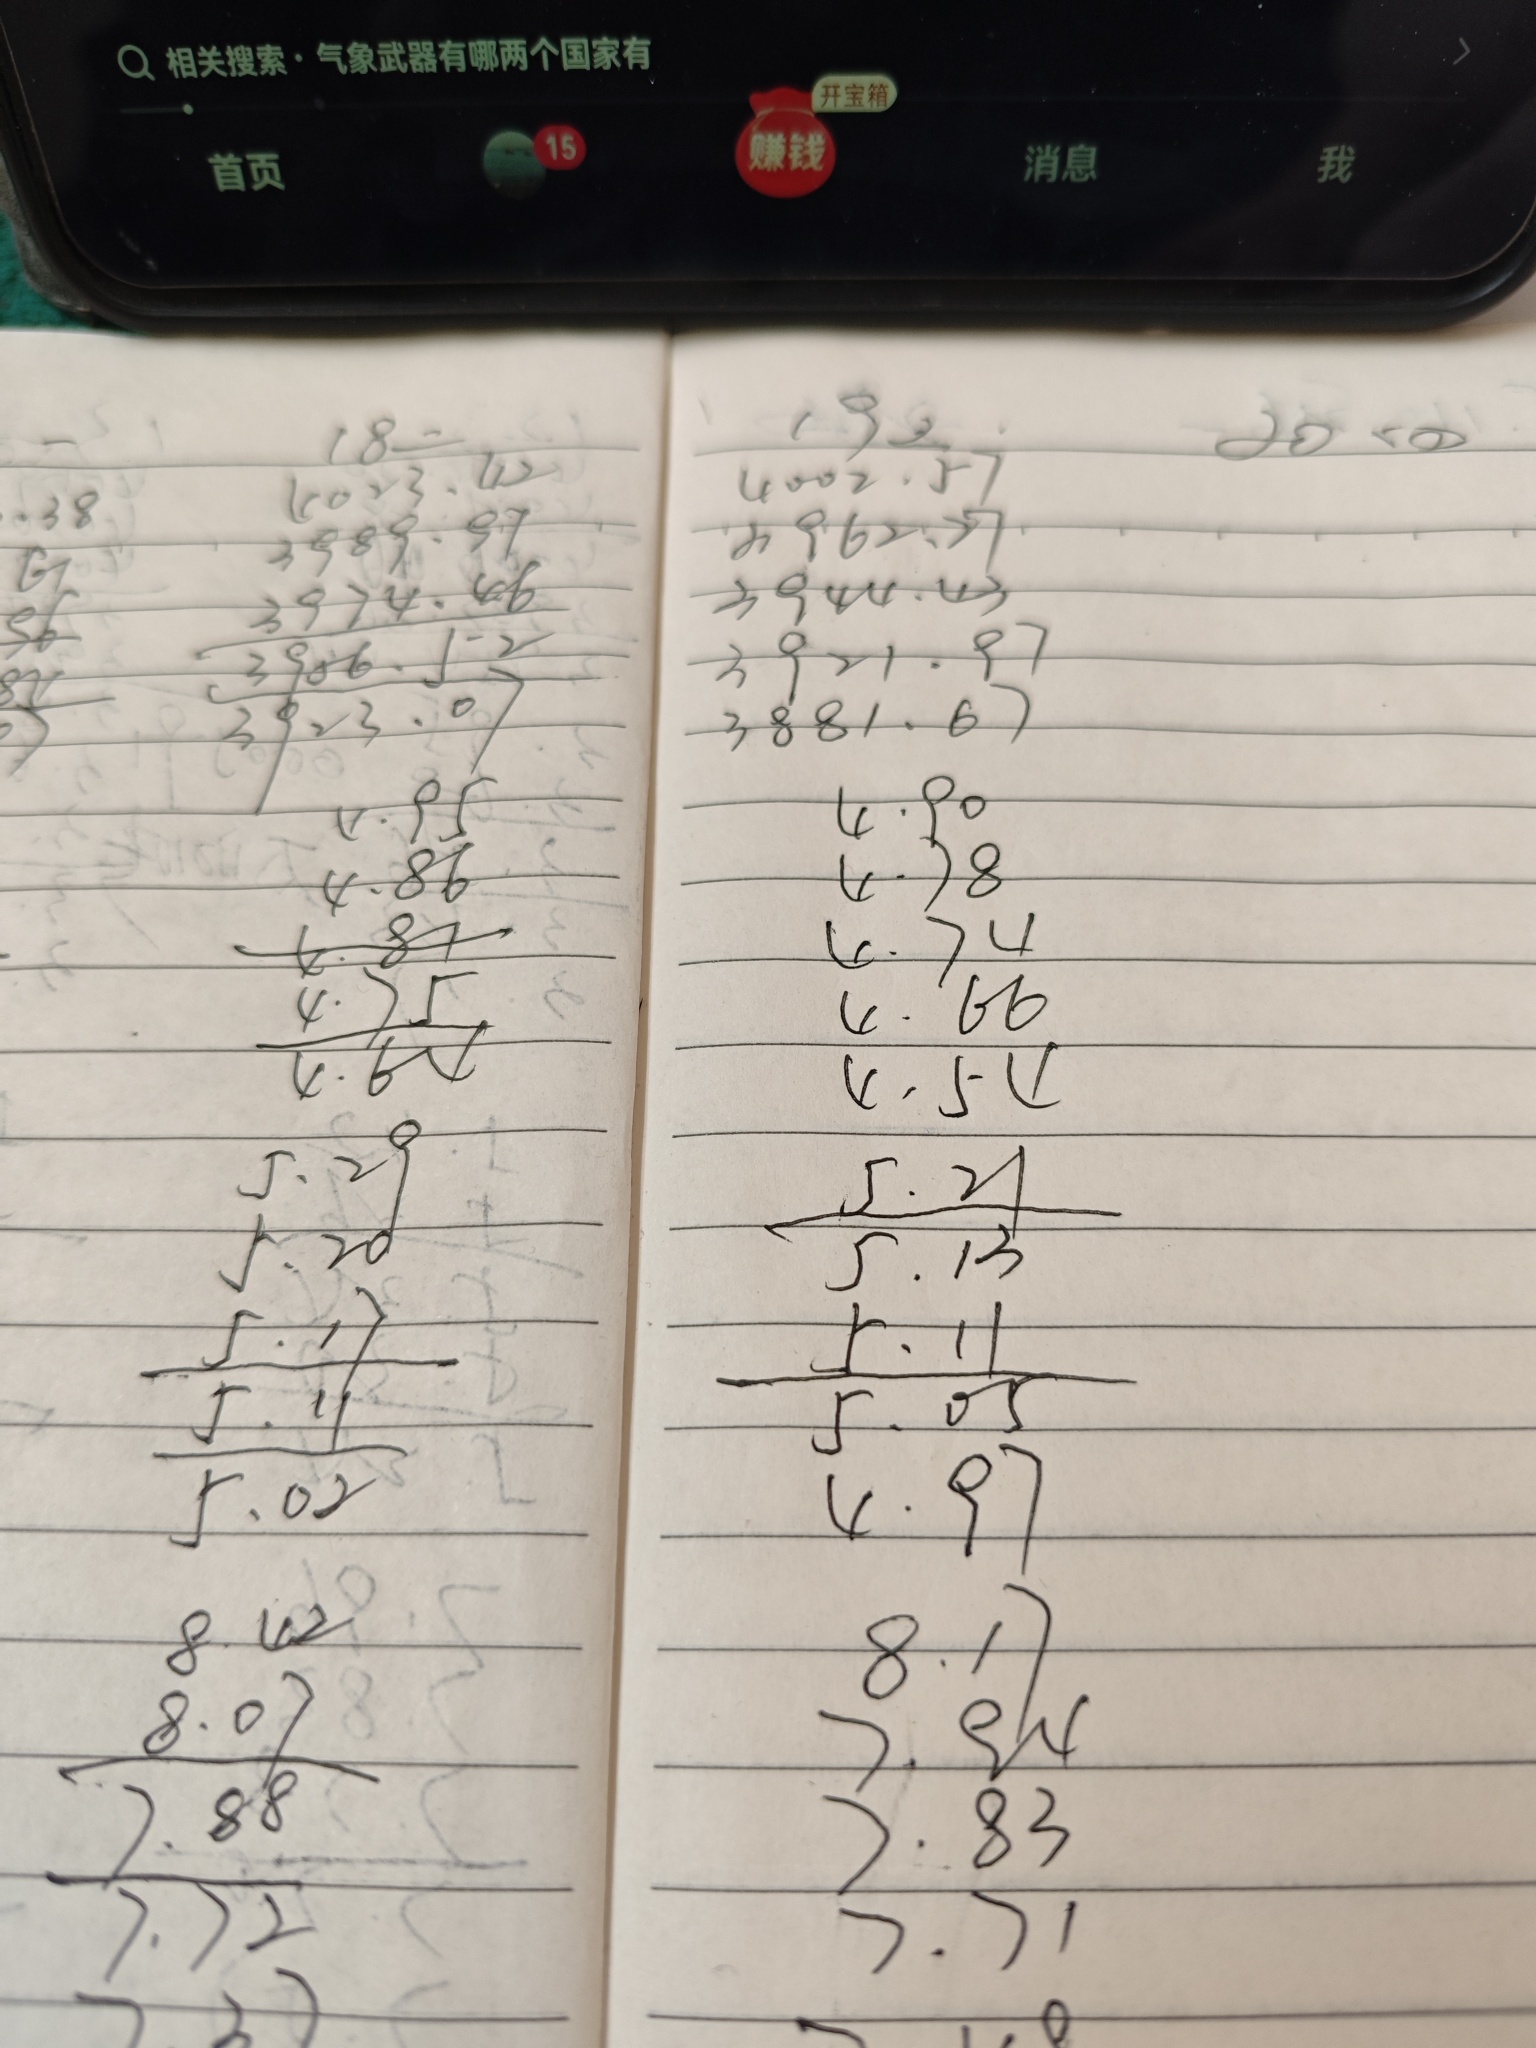 相关搜索· 气象武器有哪两个国家有
开宝箱
首页 15 赚钱 消息 我
18二
4023.42
3989.97
3974.46
3923.07
4.95
4.86
4.81
4.75
4.64
5.29
5.20
5.17
5.11
5.02
8.42
8.07
7.88
7.72
7.37
4002.57
3962.37
3944.43
3921.97
3881.67
4.90
4.78
4.74
4.66
4.54
5.21
5.13
5.11
5.05
4.97
8.17
7.94
7.83
7.71
.38
56